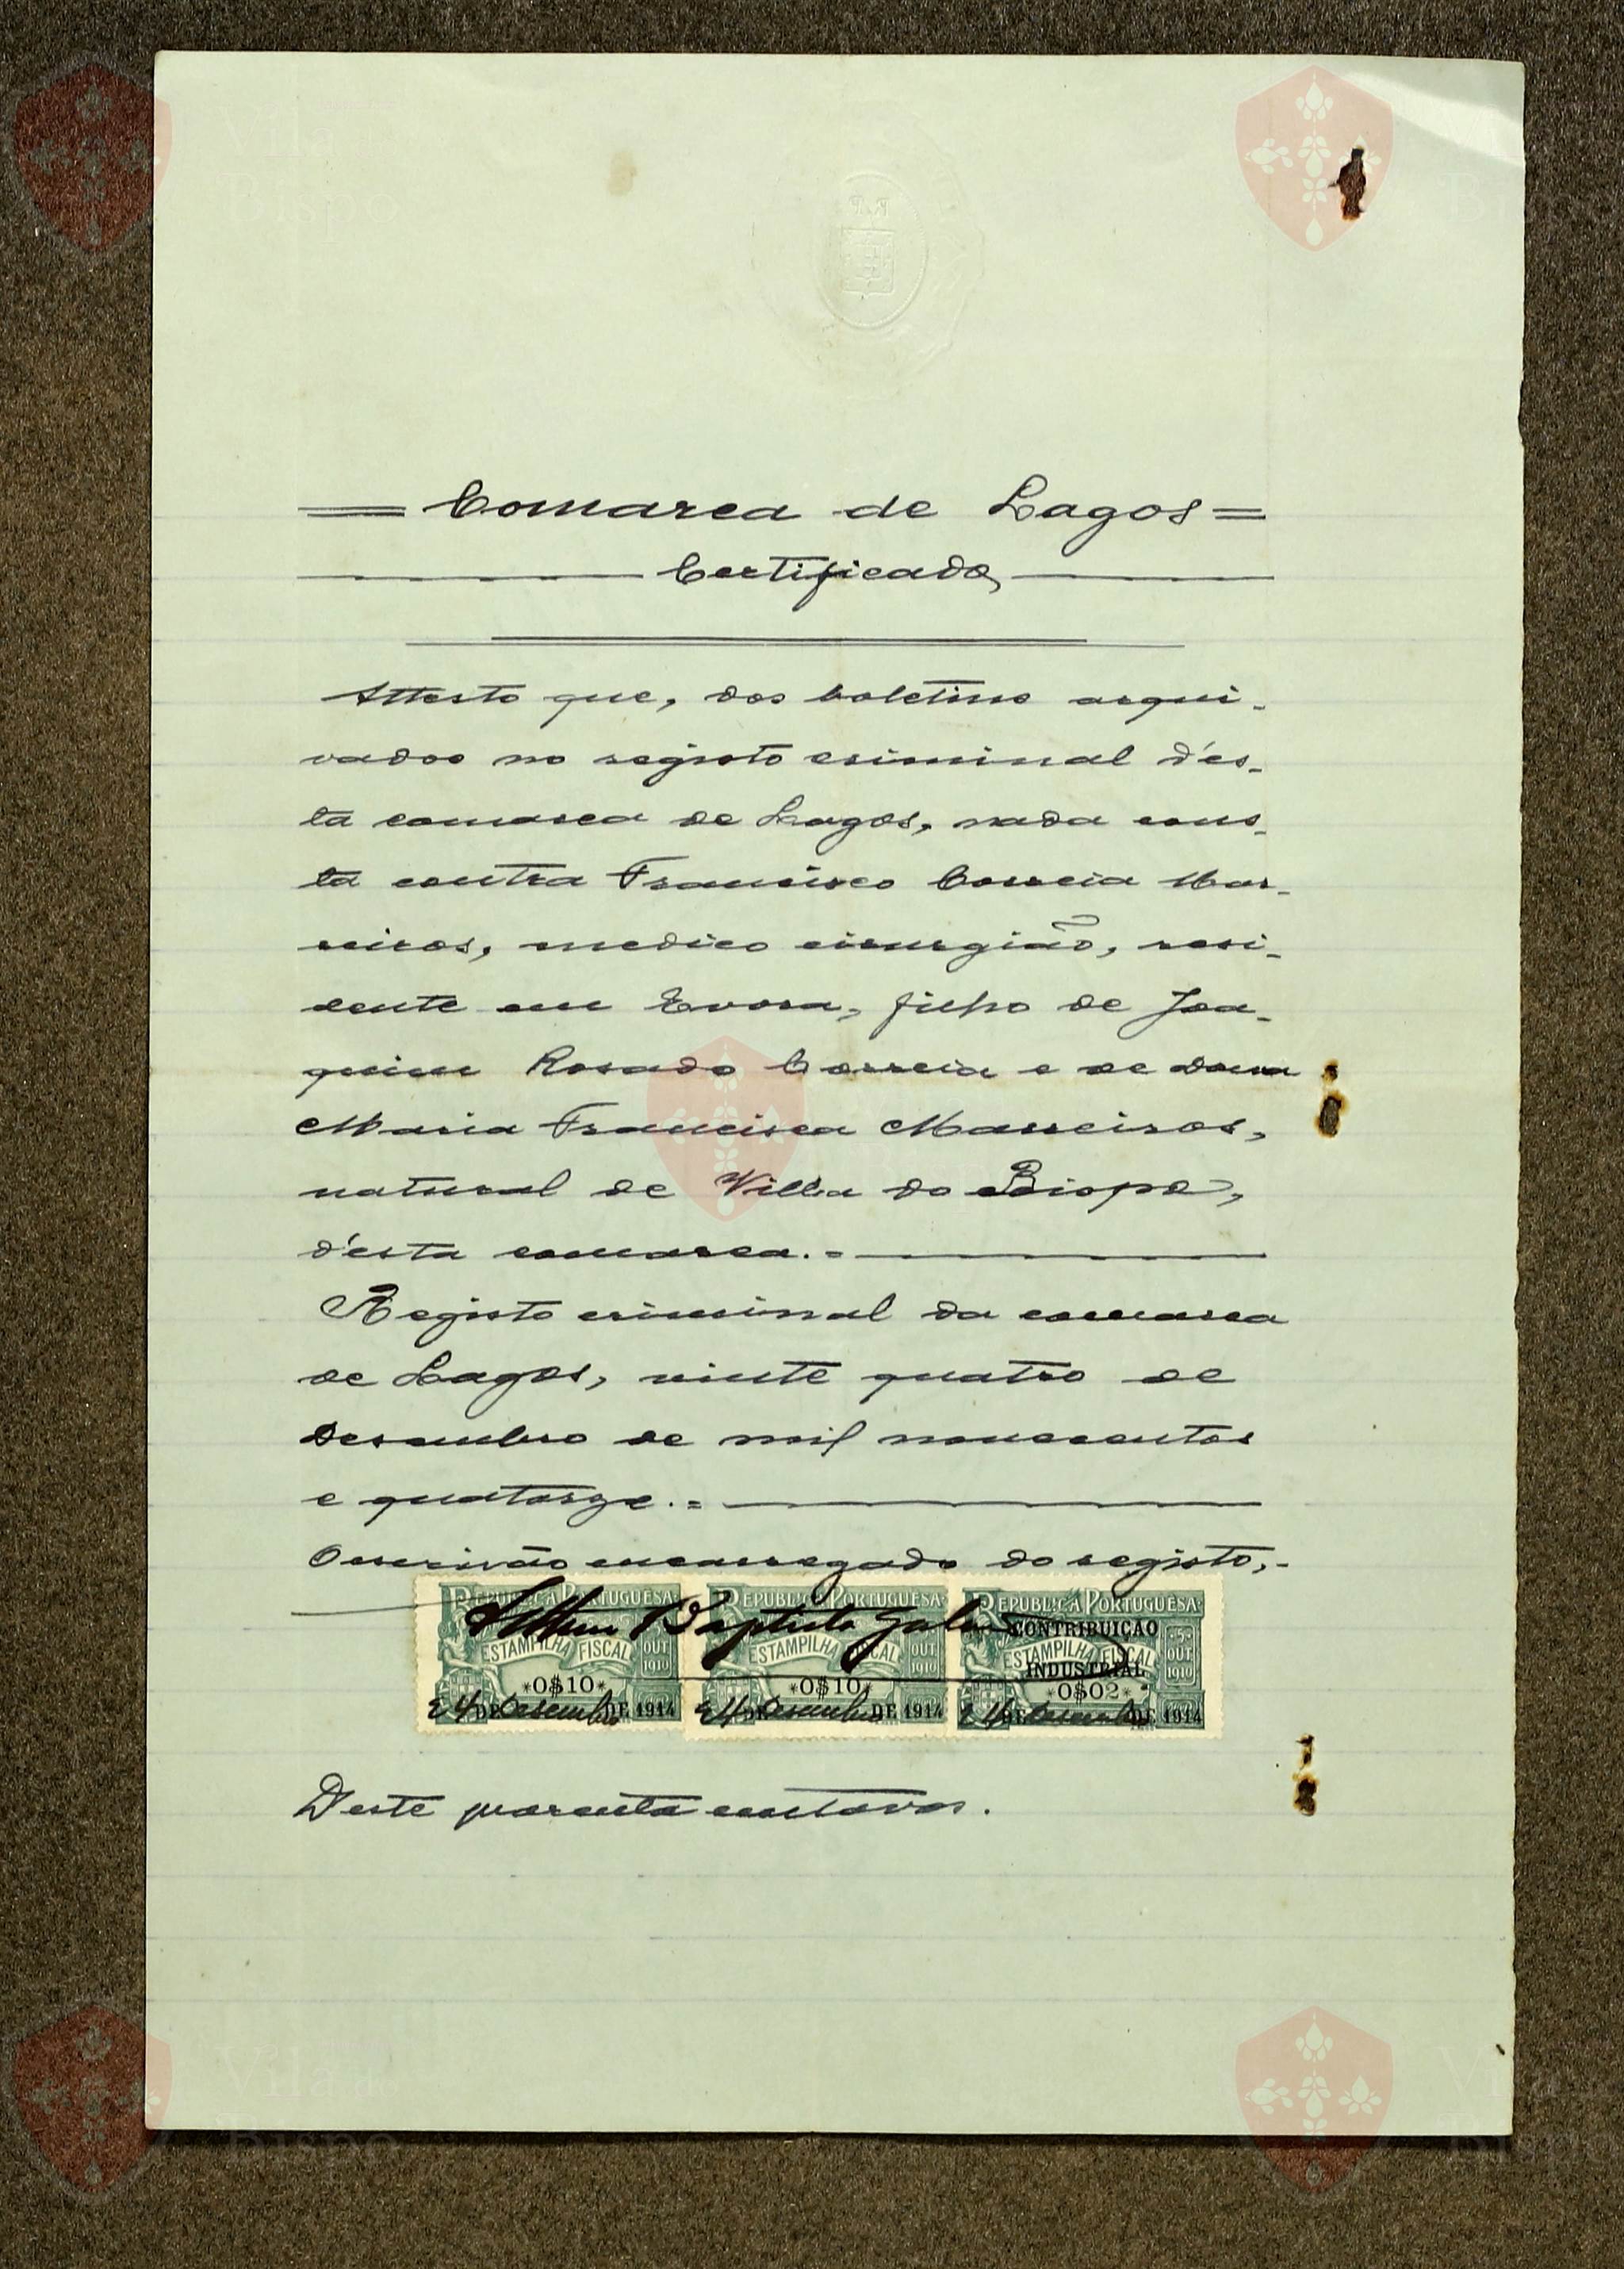 = Comarca de Lagos =
Certificado
Attesto que, dos boletins arqui-
vados no registo criminal d'es-
ta comarca de Lagos, nada cons-
ta contra Francisco Correia Mar-
reiros, medico cirurgião, resi-
dente em Evora, filho de Joa-
quim Rosado Correia e de Dona
Maria Francisca Marreiros,
natural de Villa do Bispo,
d'esta comarca.=
Registo criminal da comarca
de Lagos, vinte quatro de
Desembro de mil novecentos
e quatorze.=
O escrivão encarregado do registo,-
REPUBLICA PORTUGUESA REPUBLICA PORTUGUESA REPUBLICA PORTUGUESA
Baptista
CONTRIBUIÇÃO
ESTAMPILHA FISCAL OUT 1910 ESTAMPILHA FISCAL OUT 1910 ESTAMPILHA FISCAL 5 OUT 1910
INDUSTRIAL
*0$10* *0$10* *0$02*
24 DE Desembro DE 1914 24 DE Desembro DE 1914 24 DE Desembro DE 1914
Deste quarenta centavos.
R.P.
Vila do
Bispo